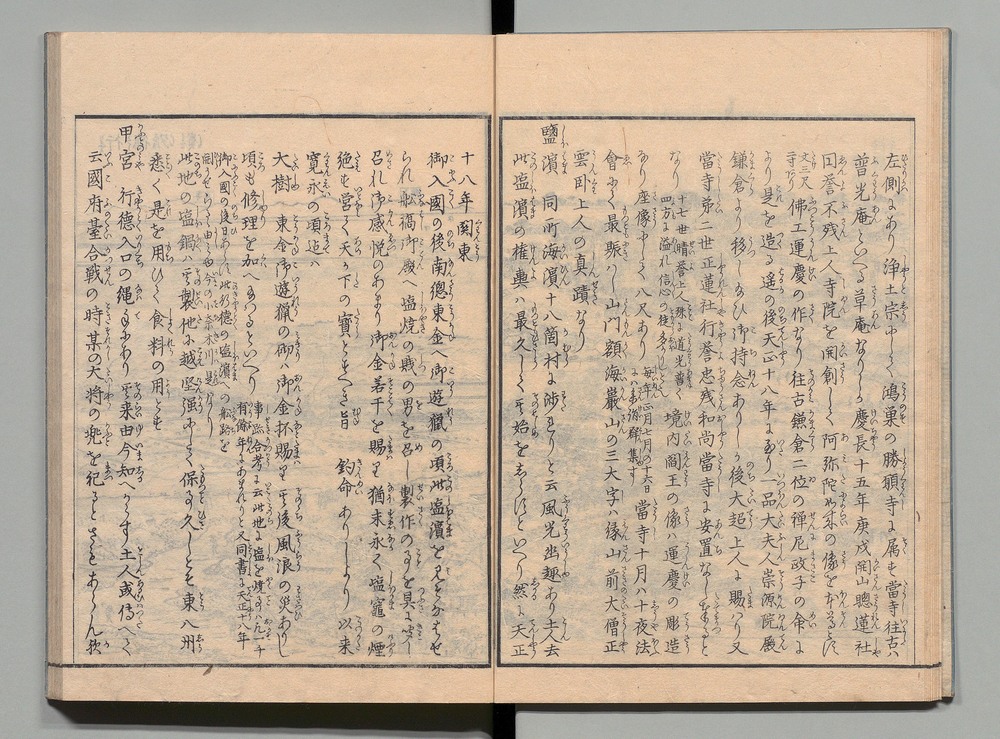 左側にあり浄土宗にして鴻巣の勝願寺に属す當寺往古ハ
普光庵といへる草庵なりしか慶長十五年庚戌開山聰蓮社
円誉不残上人寺院を開創して阿弥陀如来の像を本尊とす
丈三尺寺たり佛工運慶の作なり往古鎌倉二位の禅尼政子の命に
より是を造る遥の後天正十八年にあり一品大夫人崇源院殿
鎌倉より移し給ひ御持念ありしか後大超上人に賜ハり又
當寺第二世正蓮社行誉忠残和尚當寺に安置なし奉ると
なり 十七世晴誉上人殊に道光普く四方に溢れ信心の徒多かりしと 境内閻王の像ハ運慶の彫造
なり座像にして八尺あり 毎年正月七月の十六日にハ参詣群集す 當寺十月ハ十夜法
會にて最賑ハし山門額海巖山の三大字ハ縁山前大僧正
雲臥上人の真蹟なり
鹽濱 同所海濱十八箇村に渉れりと云風光幽趣あり土人去
此塩濱の権輿ハ最久しく其始を志らすといへり然に天正
十八年関東
御入國の後南總東金へ御遊猟の頃此塩濱を見そなハせ
られ舩橋御殿へ塩焼の賎の男を召し製作の事を具に
召れ御感悦のあまり御金若干を賜ハり猶末永く塩竈の煙
絶す営て天か下の寳とすへき旨 鈞命ありしより以来
寛永の頃迄ハ
大樹 東金御遊猟の砌ハ御金抔賜り其後風浪の災ありし
頃も修理を加へ給るといへり 事跡合考に云此地に塩を焼事ハ凡一千有餘年にあまれりと又同書に天正十八年
御入國の後日あらす此行徳の塩濱への船路を
開かせらるゝ由今の小奈木川是なり
此地の塩鍋ハ其製他に越堅強にして保事久しとそ東八州
悉く是を用ひて食料の用とす
甲宮 行徳入口の縄手にあり其来由今知へからす土人或傳へて
云國府臺合戦の時某の大将の兜を祀ると されとあらん歟